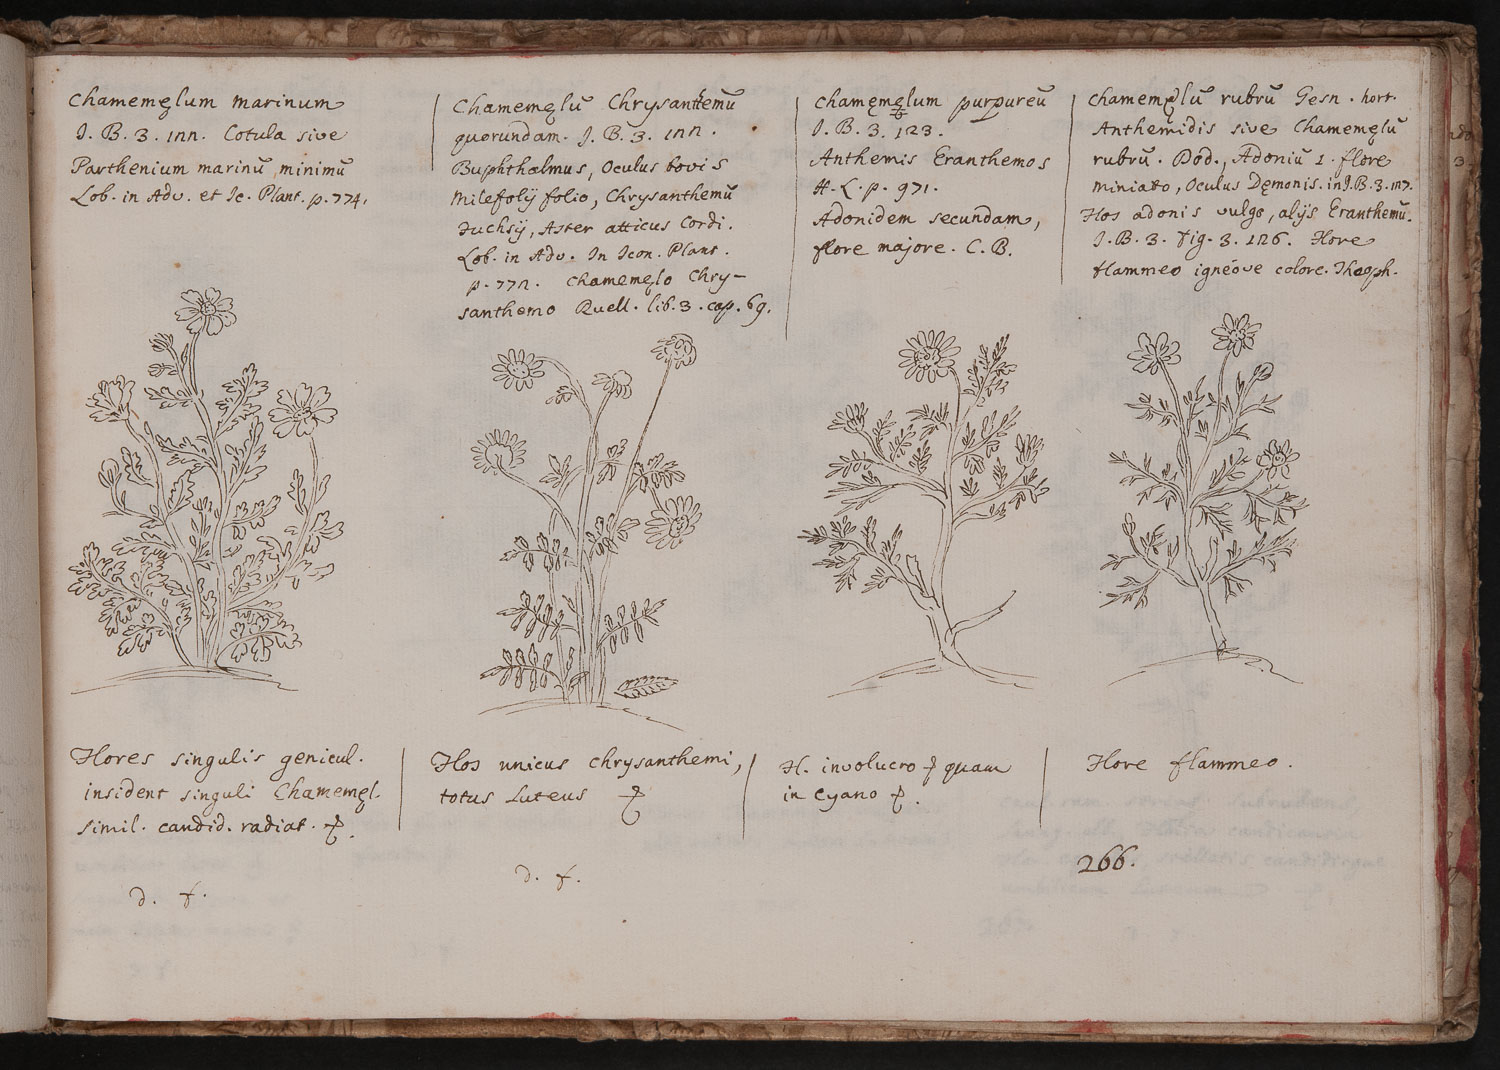 Chamemęlum marinum
J. B. 3. 122. Cotula sive
Parthenium marinū minimū
Lob. in Adv. et Ic. Plant. p. 774.
Chamemęlū Chrysanthemū
quorundam. J. B. 3. 122.
Buphthalmus, Oculus bovis
Milefolij folio, Chrysanthemū
Fuchsij, Aster atticus Cordi.
Lob. in Adv. In Icon. Plant.
p. 772. Chamemęlo Chry-
santhemo Ruell. lib. 3. cap. 69.
Chamęmęlum purpureū
J. B. 3. 123.
Anthemis Eranthemos
H. L. p. 971.
Adonidem secundam,
flore majore. C. B.
Chamemęlū rubrū Gesn. hort.
Anthemidis sive Chamemęlū
rubrū. Dod., Adoniū 1. flore
miniato, Oculus Dęmonis. in J. B. 3. 127.
Flos adonis vulgo, alijs Eranthemū.
J. B. 3. fig. 3. 126. Flore
flammeo igneóve colore. Theoph.
Flores singulis genicul.
insident singuli Chamemęl.
simil. candid. radiat.
d. f.
Flos unicus chrysanthemi,
totus Luteus
d. f.
H. involucro quam
in Cyano
Flore flammeo.
266.